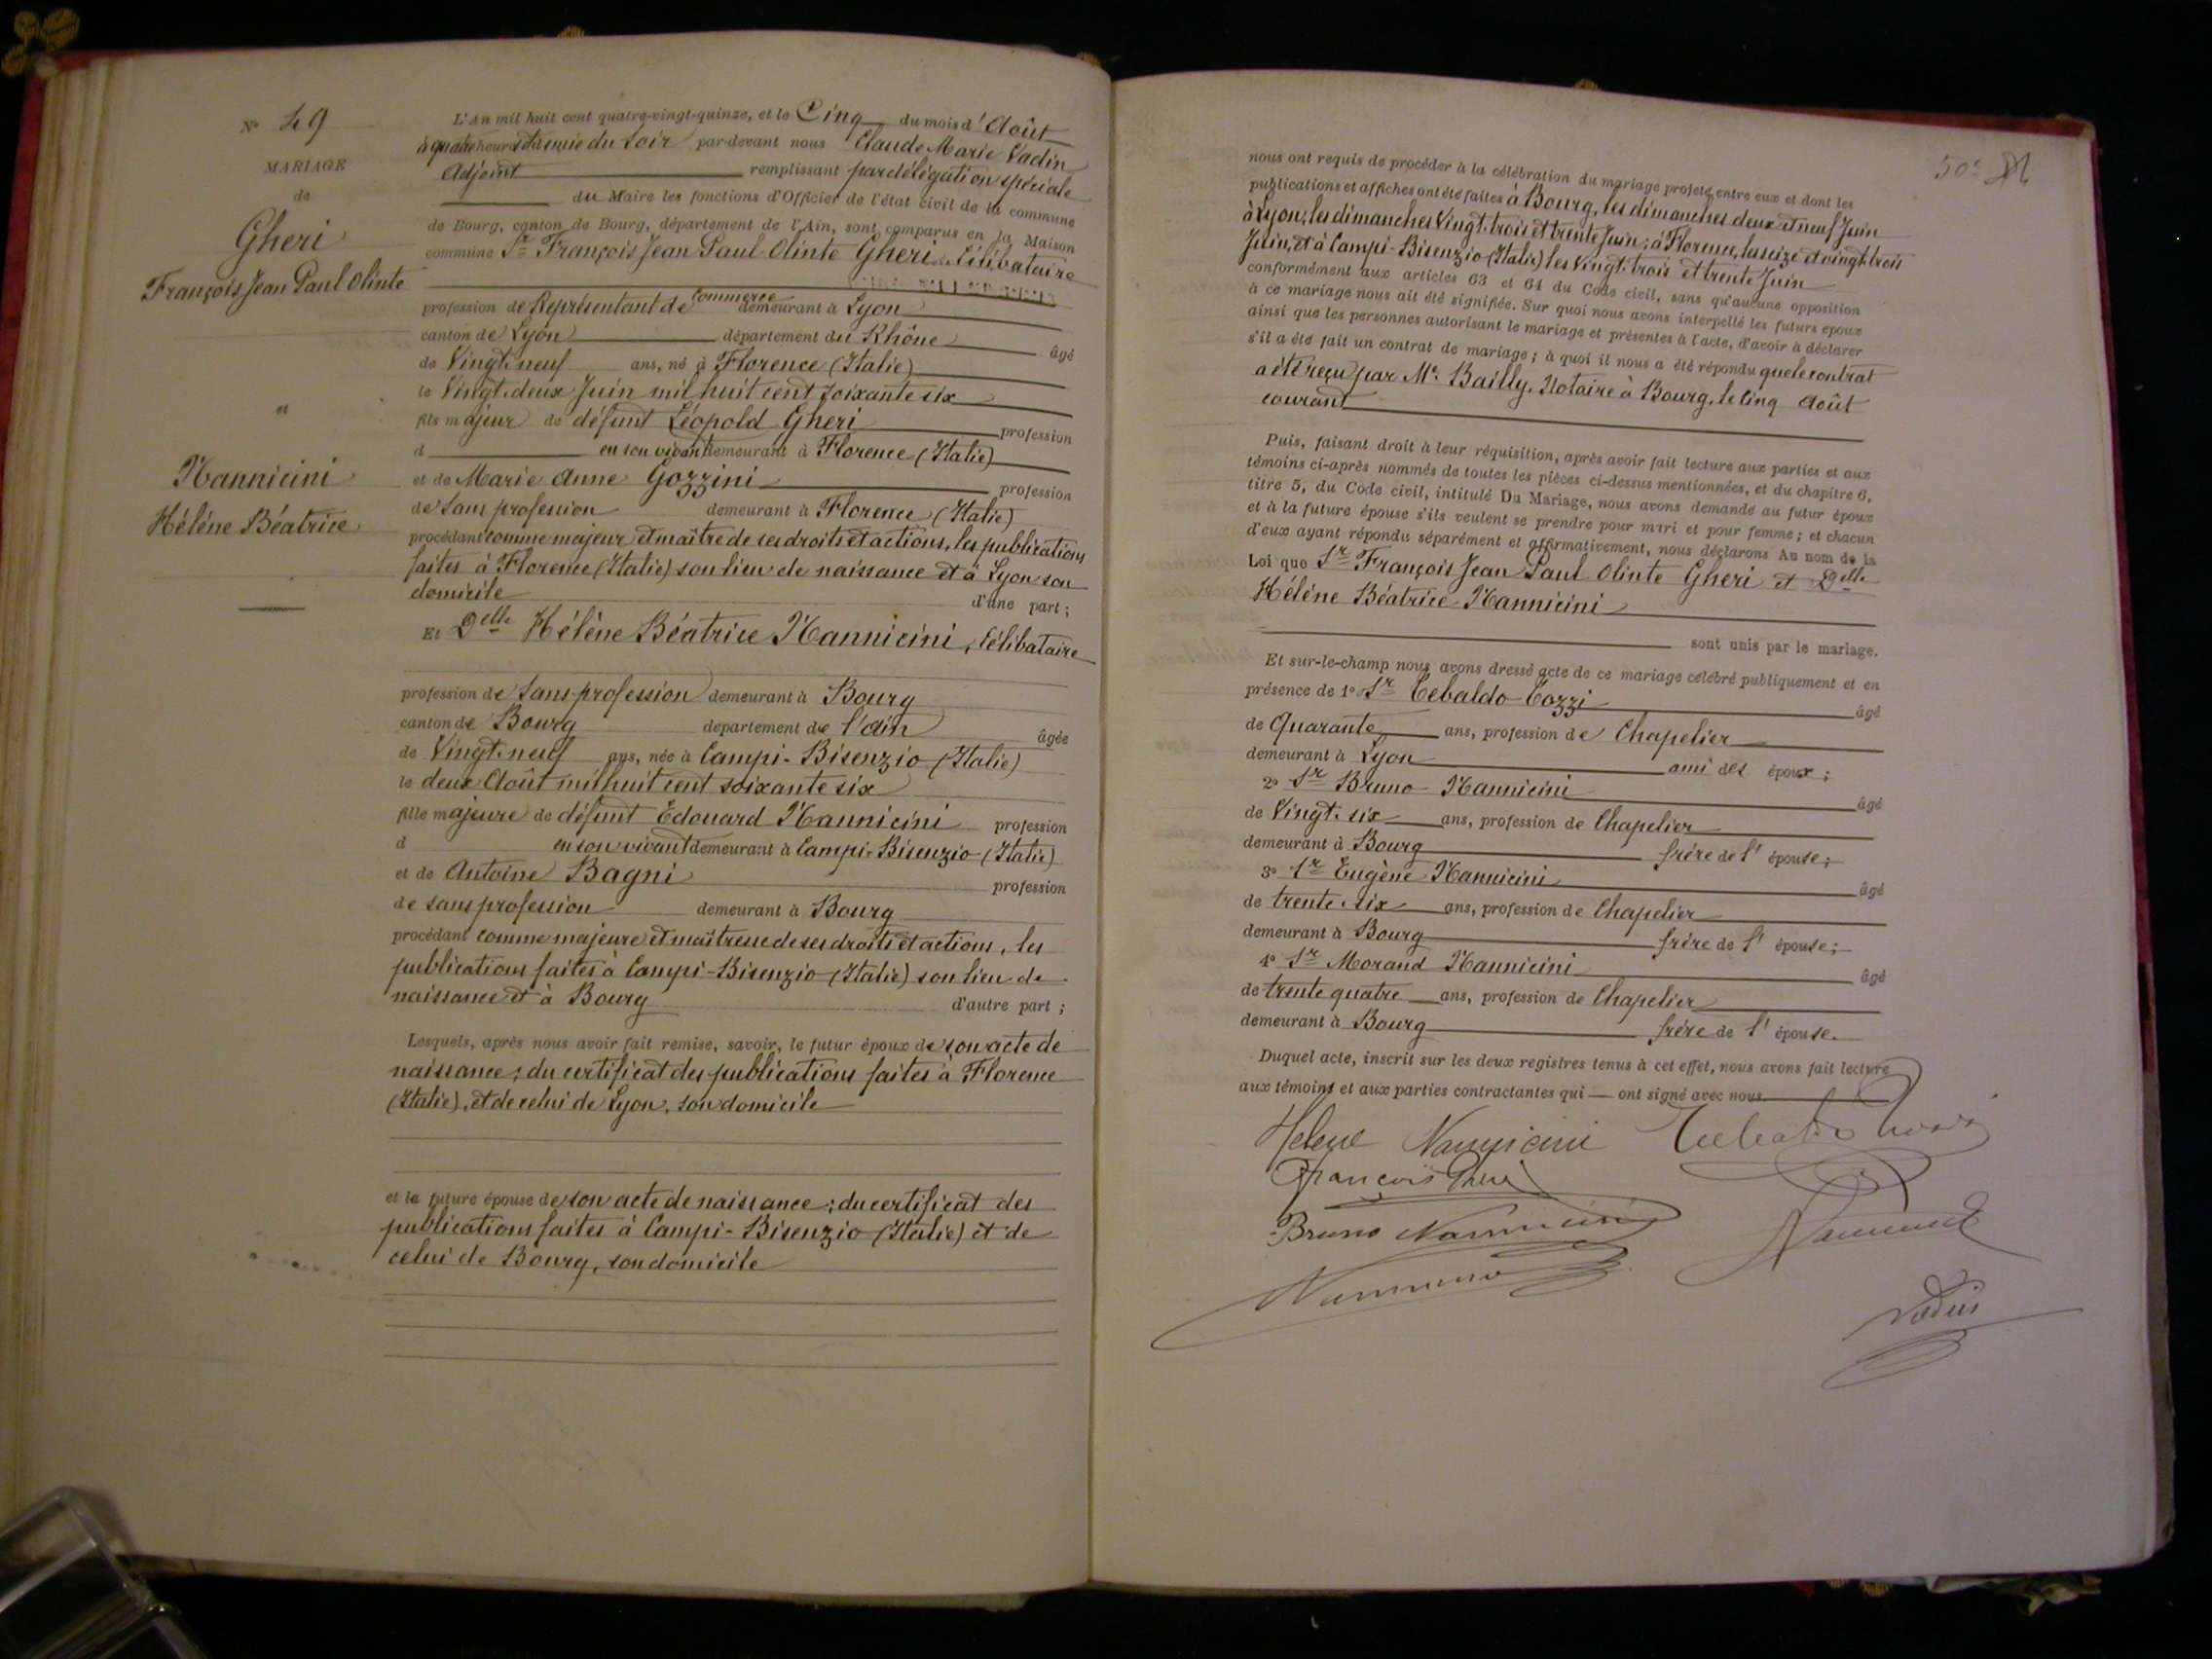 N° 49
MARIAGE
de
Gheri
François Jean Paul Olinte
et
Nannicini
Hélène Béatrice
L'An mil huit cent quatre-vingt-quinze, et le Cinq du mois d'Août
à quatre heures et demie du soir par-devant nous Claude Marie Vadin
Adjoint remplissant par délégation spéciale
du Maire les fonctions d'Officier de l'état civil de la commune
de Bourg, canton de Bourg, département de l'Ain, sont comparus en la Maison
commune Sr François Jean Paul Olinte Gheri, Célibataire
profession de Représentant de Commerce demeurant à Lyon
canton de Lyon département du Rhône âgé
de Vingt-neuf ans, né à Florence (Italie)
le Vingt-deux Juin mil huit cent soixante six
fils majeur de défunt Léopold Gheri profession
d en son vivant demeurant à Florence (Italie)
et de Marie Anne Gozzini profession
de Sans profession demeurant à Florence (Italie)
procédant comme majeur et maître de ses droits et actions, les publications
faites à Florence (Italie) son lieu de naissance et à Lyon son
domicile d'une part ;
Et Delle Hélène Béatrice Nannicini, Célibataire
profession de Sans profession demeurant à Bourg
canton de Bourg département de l'Ain âgée
de Vingt-neuf ans, née à Campi-Bisenzio (Italie)
le deux Août mil huit cent soixante six
fille majeure de défunt Edouard Nannicini profession
d en son vivant demeurant à Campi-Bisenzio (Italie)
et de Antoine Bagni profession
de sans profession demeurant à Bourg
procédant comme majeure et maîtresse de ses droits et actions, les
publications faites à Campi-Bisenzio (Italie) son lieu de
naissance et à Bourg d'autre part ;
Lesquels, après nous avoir fait remise, savoir, le futur époux de son acte de
naissance ; du certificat des publications faites à Florence
(Italie), et de celui de Lyon, son domicile
et la future épouse de son acte de naissance ; du certificat des
publications faites à Campi-Bisenzio (Italie) et de
celui de Bourg, son domicile
50e
nous ont requis de procéder à la célébration du mariage projeté entre eux et dont les
publications et affiches ont été faites à Bourg, les dimanches deux et neuf Juin
à Lyon, les dimanches Vingt-trois et trente Juin ; à Florence, les seize et vingt-trois
Juin, et à Campi-Bisenzio (Italie) les Vingt-trois et trente Juin
conformément aux articles 63 et 64 du Code civil, sans qu'aucune opposition
à ce mariage nous ait été signifiée. Sur quoi nous avons interpellé les futurs époux
ainsi que les personnes autorisant le mariage et présentes à l'acte, d'avoir à déclarer
s'il a été fait un contrat de mariage ; à quoi il nous a été répondu que le contrat
a été reçu par Me Bailly, Notaire à Bourg, le Cinq Août
courant
Puis, faisant droit à leur réquisition, après avoir fait lecture aux parties et aux
témoins ci-après nommés de toutes les pièces ci-dessus mentionnées, et du chapitre 6,
titre 5, du Code civil, intitulé Du Mariage, nous avons demandé au futur époux
et à la future épouse s'ils veulent se prendre pour mari et pour femme ; et chacun
d'eux ayant répondu séparément et affirmativement, nous déclarons Au nom de la
Loi que Sr François Jean Paul Olinte Gheri et Delle
Hélène Béatrice Nannicini
sont unis par le mariage.
Et sur-le-champ nous avons dressé acte de ce mariage célébré publiquement et en
présence de 1° Sr Tebaldo Tozzi âgé
de Quarante ans, profession de Chapelier
demeurant à Lyon ami des époux ;
2° Sr Bruno Nannicini âgé
de Vingt-six ans, profession de Chapelier
demeurant à Bourg frère de l'épouse ;
3° Sr Eugène Nannicini âgé
de trente-six ans, profession de Chapelier
demeurant à Bourg frère de l'épouse ;
4° Sr Morand Nannicini âgé
de trente quatre ans, profession de Chapelier
demeurant à Bourg frère de l'épouse.
Duquel acte, inscrit sur les deux registres tenus à cet effet, nous avons fait lecture
aux témoins et aux parties contractantes qui — ont signé avec nous.
Helene Nannicini
François Gheri
Bruno Nannicini
Vadin